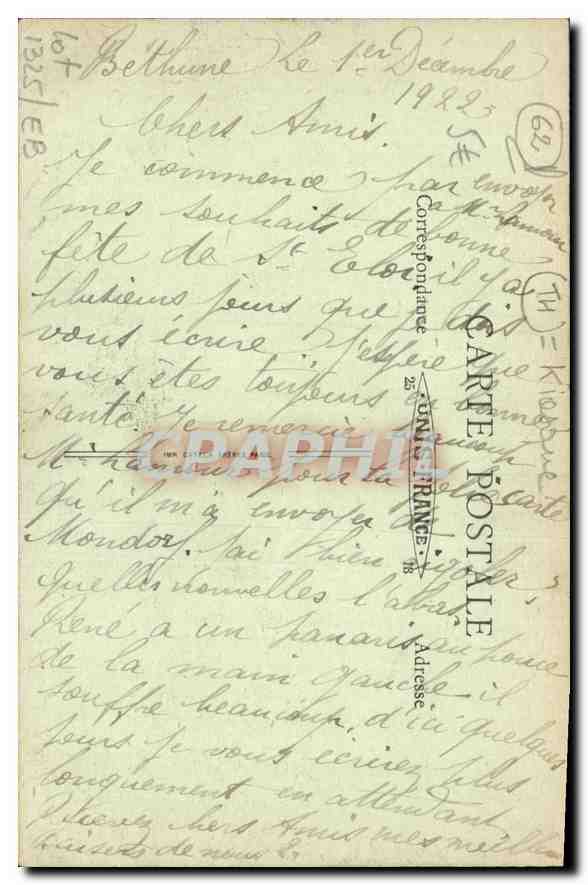 Béthune Le 1er Décembre
1922
Chers Amis.
Je commence par envoyer
a Mr Hamoux
mes souhaits de bonne
fête de St Eloi il y a
plusieurs jours que je dois
vous écrire j'espère que
vous êtes toujours en bonne
santé. Je remercie
Mr Hamoux pour la belle carte
qu'il m'a envoyer de
Mondor. j'ai bien rigoler,
quelles nouvelles l'abas,
René a un panaris au pouce
de la main gauche il
souffre beaucoup. d'ici quelques
jours je vous écrirez plus
longuement en attendant
Recevez chers Amis mes meilleurs
baisers de nous 2.
lot
1325/EB
62
5€
TH = Kiosque
CARTE POSTALE
Correspondance
Adresse
25 UNIS FRANCE 18
CPAPHIL